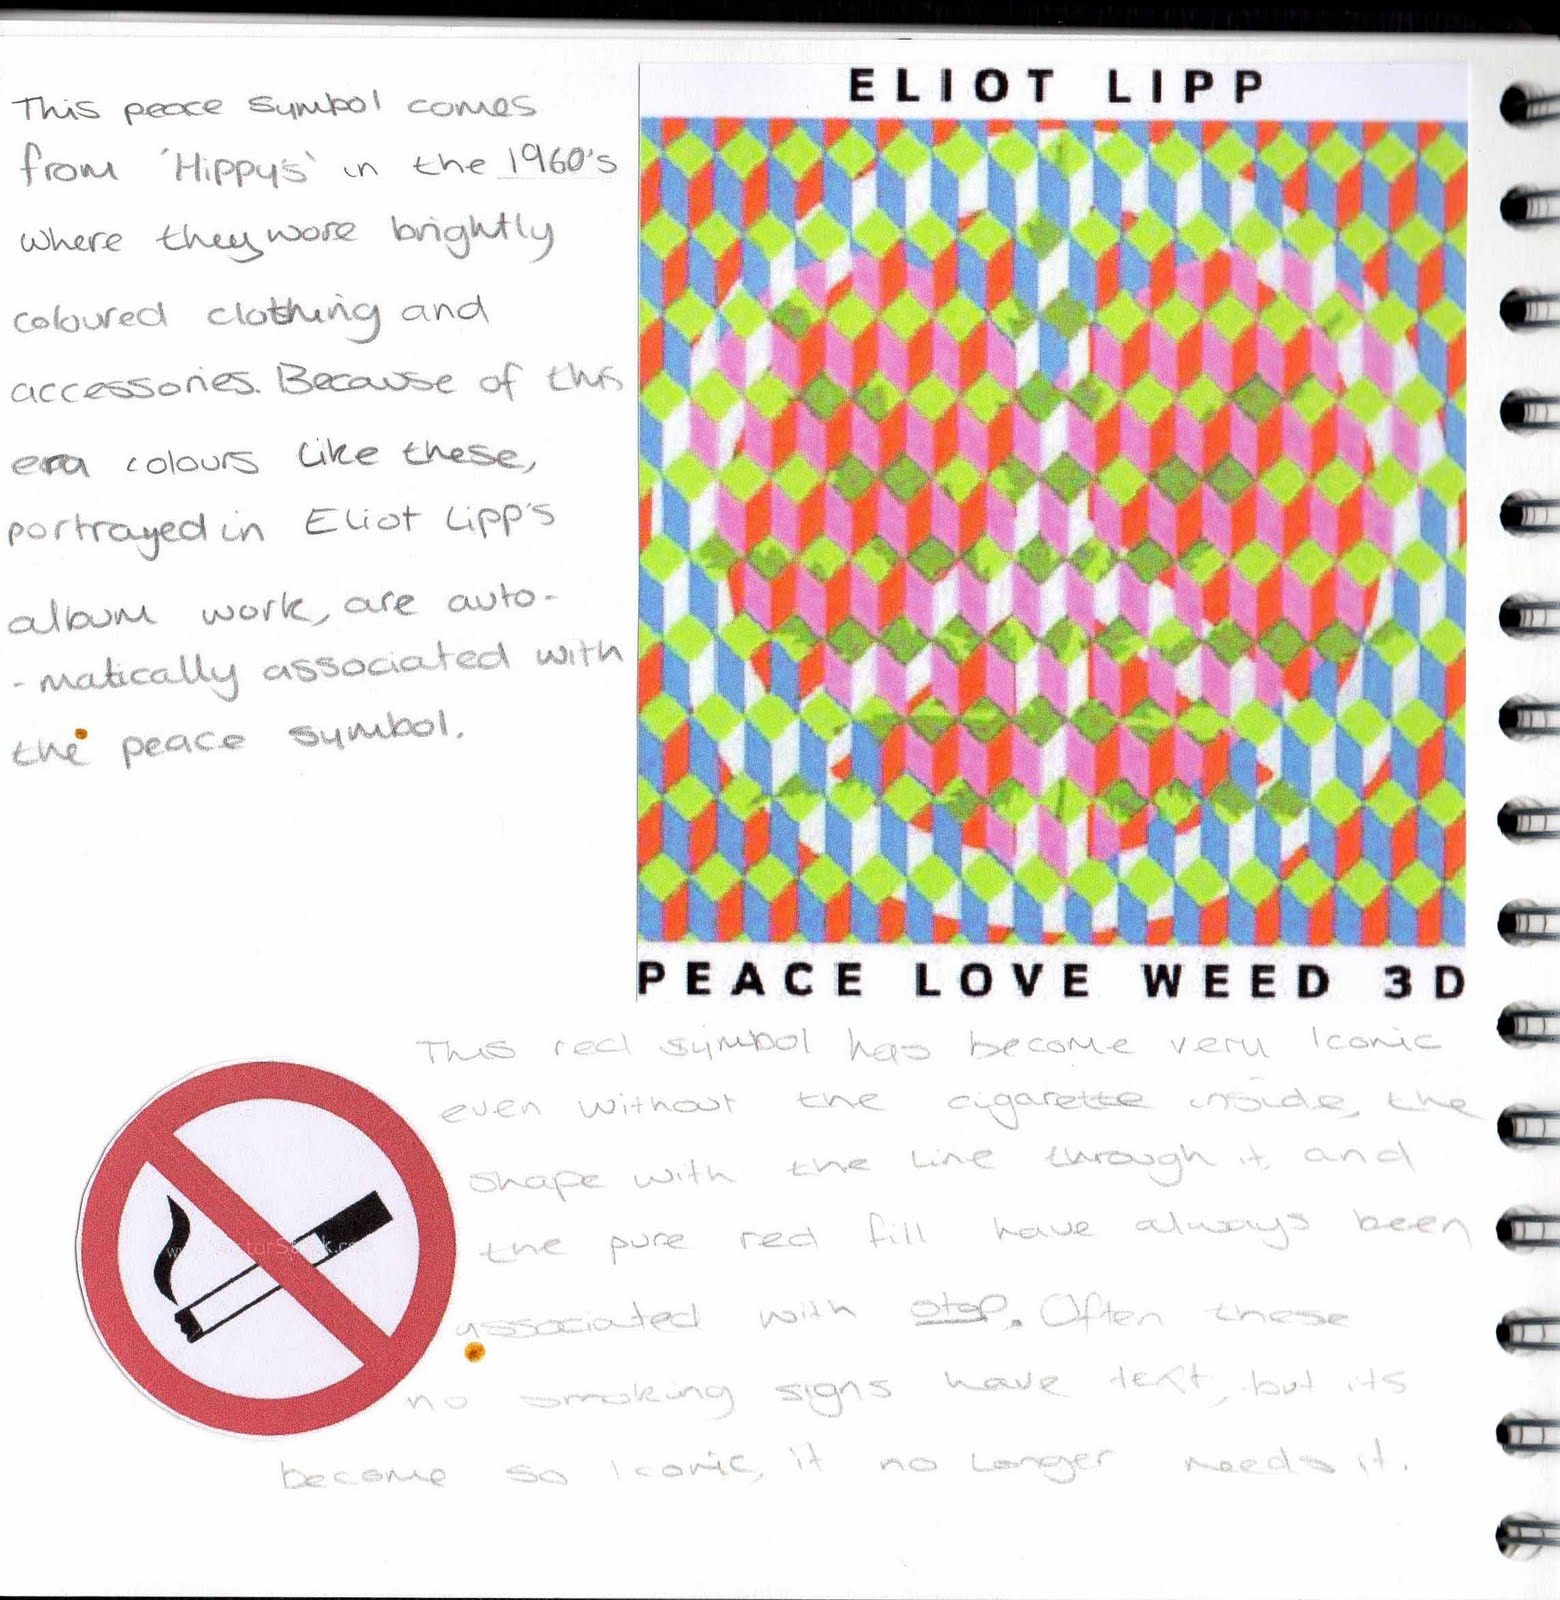 This peace symbol comes
from 'Hippy's' in the 1960's
where they wore brightly
coloured clothing and
accessories. Because of this
era colours like these,
portrayed in Eliot Lipp's
album work, are auto-
-matically associated with
the peace symbol.
ELIOT LIPP
PEACE LOVE WEED 3D
This red symbol has become very Iconic
even without the cigarette inside, the
shape with the line through it, and
the pure red fill have always been
associated with stop. Often these
no smoking signs have text, but its
become so Iconic, it no longer needs it.